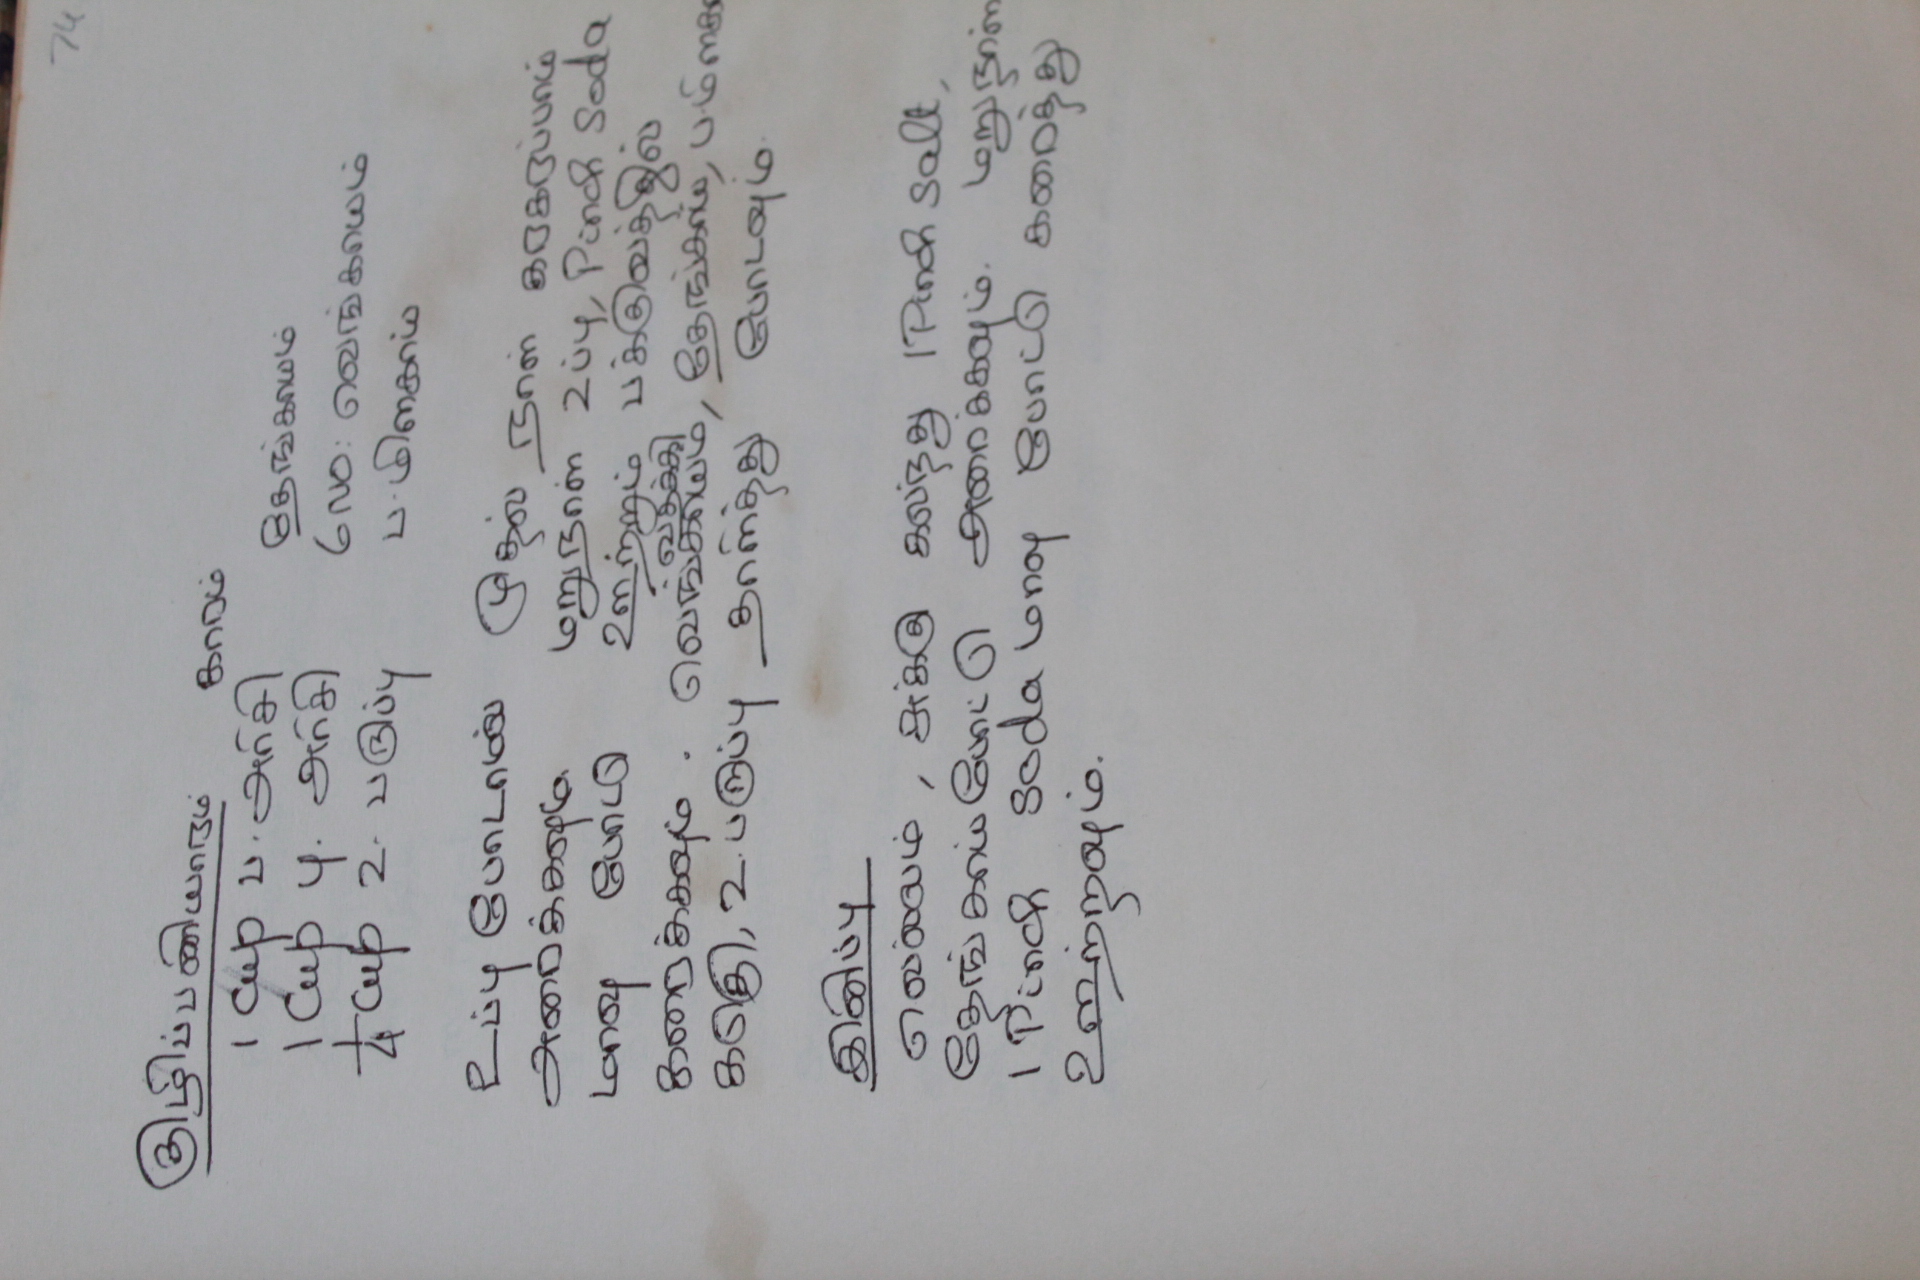 74
குழிப்பணியாரம் காரம்
1 Cup ப. அரிசி தேங்காயம்
1 Cup பு. அரிசி வெ: வெங்காயம்
1/4 Cup உ. பருப்பு ப. மிளகாய்
உப்பு போடாமல் முதல் நாள்
அரைக்கவும். மறுநாள் உப்பு, Pinch Soda
மாவு போட்டு ஊற்றும் பக்குவத்தில்
கரைக்கவும். வெங்காயம், தேங்காய், ப.மிளகா
வதக்கி
கடுகு, உ. பருப்பு தாளித்து போடவும்.
இனிப்பு
வெல்லம், சுக்கு கலந்து 1 Pinch Salt,
தேங்காய் போட்டு அரைக்கவும். மறுநாள்
1 Pinch Soda மாவு போட்டு கரைத்து
ஊற்றவும்.